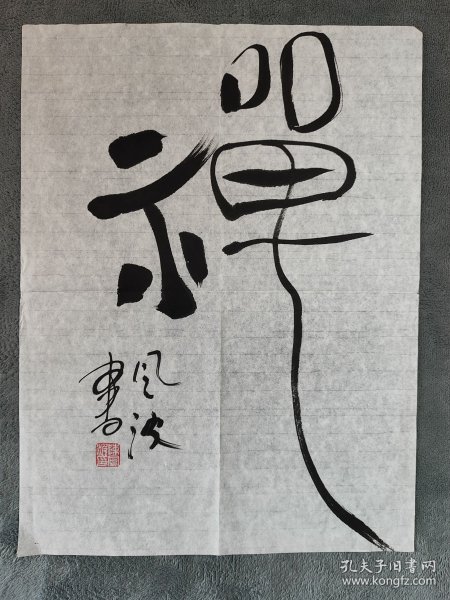 禪
風波
書
孔夫子旧书网
www.kongfz.com